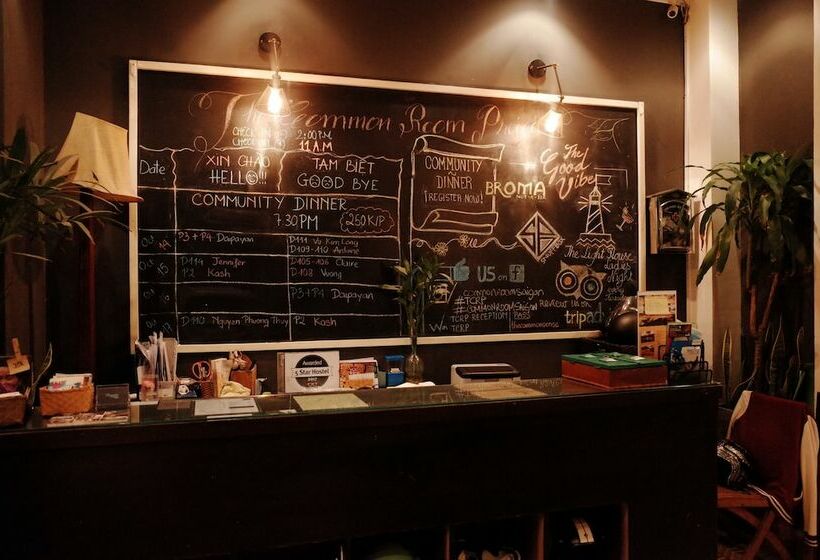 The Common Room Project
CHECK IN 2:00 P.M
CHECK 11 A.M
Date
XIN CHÀO
HELLO!!!
TẠM BIỆT
GOOD BYE
COMMUNITY DINNER
7.30PM
260K/P
P3 + P4 Daipayan
D111 Vu Kim Long
D109-110 Antoine
D114 Jennifer
P2 Kash
D105-106 Claire
D108 Vuong
P3+P4 Daipayan
D110 Nguyen Phuong Thuy
P2 Kash
COMMUNITY
DINNER
REGISTER NOW!
BROMA
The
Good
Vibe
The Light House
Ladies
Night
US on f
commonroomsaigon
#TCRP
#COMMONROOMSAIGON
TCRP RECEPTION
TCRP
PASS
thecommonroom
Review us on
tripad
Awarded
5 Star Hostel
2017